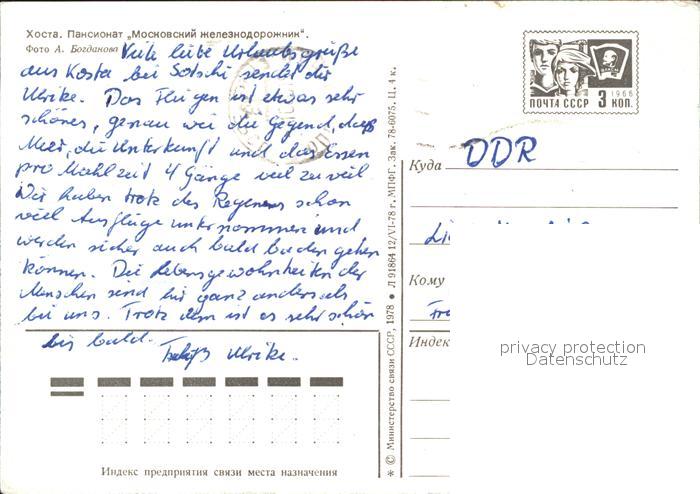 Хоста. Пансионат „Московский железнодорожник".
Фото А. Богданова
Viele liebe Urlaubsgrüße
aus Kosta bei Sotschi sendet dir
Ulrike. Das Fliegen ist etwas sehr
schönes, genau wie die Gegend, das
Meer, die Unterkunft und das Essen
pro Mahlzeit 4 Gänge viel zu viel
Wir haben trotz des Regens schon
viel Ausflüge unternommen und
werden sicher auch bald baden gehen
können. Die Lebensgewohnheiten der
Menschen sind hier ganz anders als
bei uns. Trotz dem ist es sehr schön
bis bald.
Ulrike.
Индекс предприятия связи места назначения
* © Министерство связи СССР, 1978 ● Л 91864 12/VI-78 г. МПФГ. Зак. 78-6075. Ц. 4 к.
ВЛКСМ
1966
ПОЧТА СССР 3 КОП.
Куда DDR
Кому
Индекс
privacy protection
Datenschutz